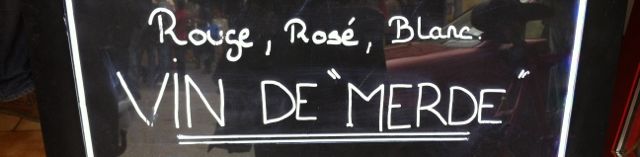 Rouge, Rosé, Blanc.
VIN DE "MERDE"